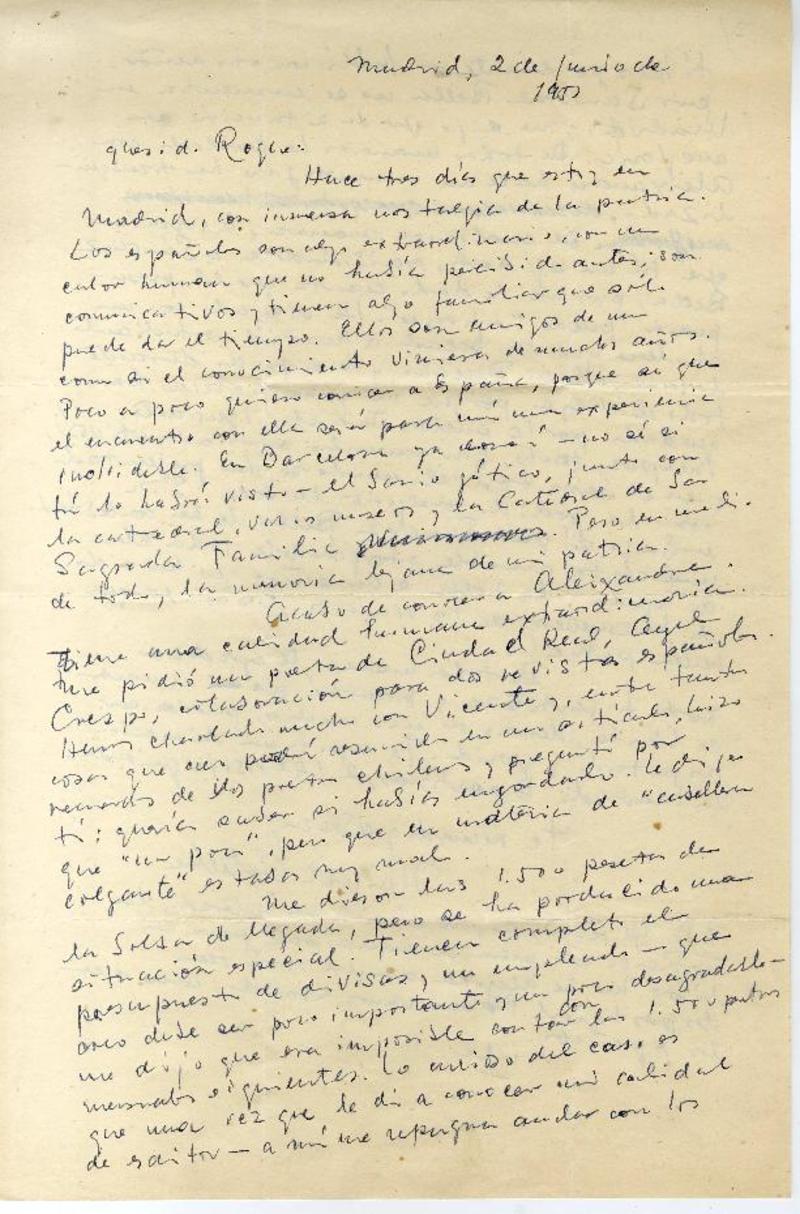 Madrid, 2 de Junio de
195
querid. Roque:
Hace tres días que estoy en
Madrid, con inmensa nostalgia de la patria.
Los españoles son algo extraordinario, con un
calor humano que no había percibido antes; son
comunicativos y tienen algo familiar que sólo
puede dar el tiempo. Ellos son amigos de uno
como si el conocimiento viniera de muchos años.
Poco a poco quiero conocer a España, porque sé que
el encuentro con ella será para mí una experiencia
inolvidable. En Barcelona ya conocí – no sé si
tú lo habrás visto – el barrio gótico, junto con
la catedral, varios museos y la Catedral de La
Sagrada Familia. Pero en medio
de todo, la memoria lejana de mi patria.
Acabo de conocer a Aleixandre.
Tiene una calidad humana extraordinaria.
Me pidió un poeta de Ciudad Real, Angel
Crespo, colaboración para dos revistas españolas.
Hemos charlado mucho con Vicente y, entre tantas
cosas que creo podré resumirlo en un artículo, hizo
recuerdos de los poetas chilenos y preguntó por
tí: quería saber si habías engordado. Le dije
que "un poco", pero que en materia de "cabellera
colgante" estabas muy mal.
Me dieron las 1.500 pesetas de
la bolsa de llegada, pero se ha producido una
situación especial. Tienen completo el
presupuesto de divisas y un empleado – que
creo debe ser poco importante y un poco desagradable –
me dijo que era imposible contar con las 1.500 pesetas
mensuales siguientes. Lo curioso del caso es
que una vez que le di a conocer mi calidad
de escritor – a mí me repugna andar con los